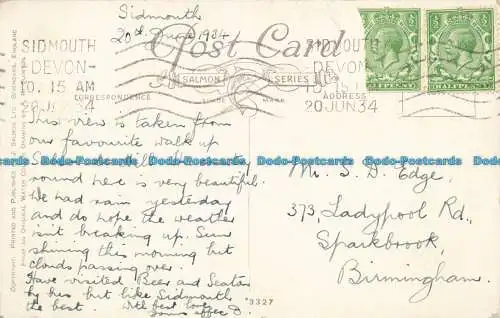 Sidmouth
20th June 1934
Post Card
SIDMOUTH
DEVON
10.15 AM
20 JUN 34
A SALMON SERIES
TRADE MARK
CORRESPONDENCE
ADDRESS
SIDMOUTH
DEVON
10.15 AM
20 JUN 34
HALFPENNY
HALFPENNY
This view is taken from
our favourite walk up
round here is very beautiful.
We had rain yesterday
and do hope the weather
isn't breaking up. Sun
shining this morning but
clouds passing over.
Have visited Beer and Seaton
by bus but like Sidmouth
the best. With best love
Yours affec
Mr. S. D. Edge,
373, Ladypool Rd.,
Sparkbrook,
Birmingham.
*3327
COPYRIGHT. PRINTED AND PUBLISHED BY J. SALMON LTD., SEVENOAKS, ENGLAND
FROM AN ORIGINAL WATER COLOUR DRAWING BY
Podcatz Postcards Podcatz Postcards Podcatz Postcards Podcatz Postcards